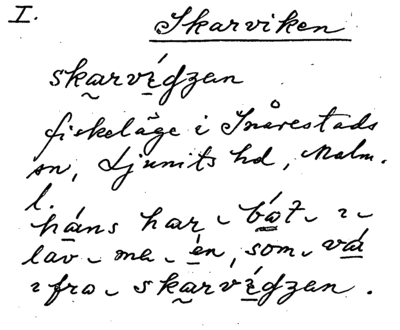 I. Skarviken
skarvígzen
fiskeläge i Snårestads
sn, Ljunits hd, Malm.
l.
háns har ˎ bát ˎ ı ˎ
lav ˎ me ˎ én, som ˎ vá
ı fra ˎ skarvígzen.